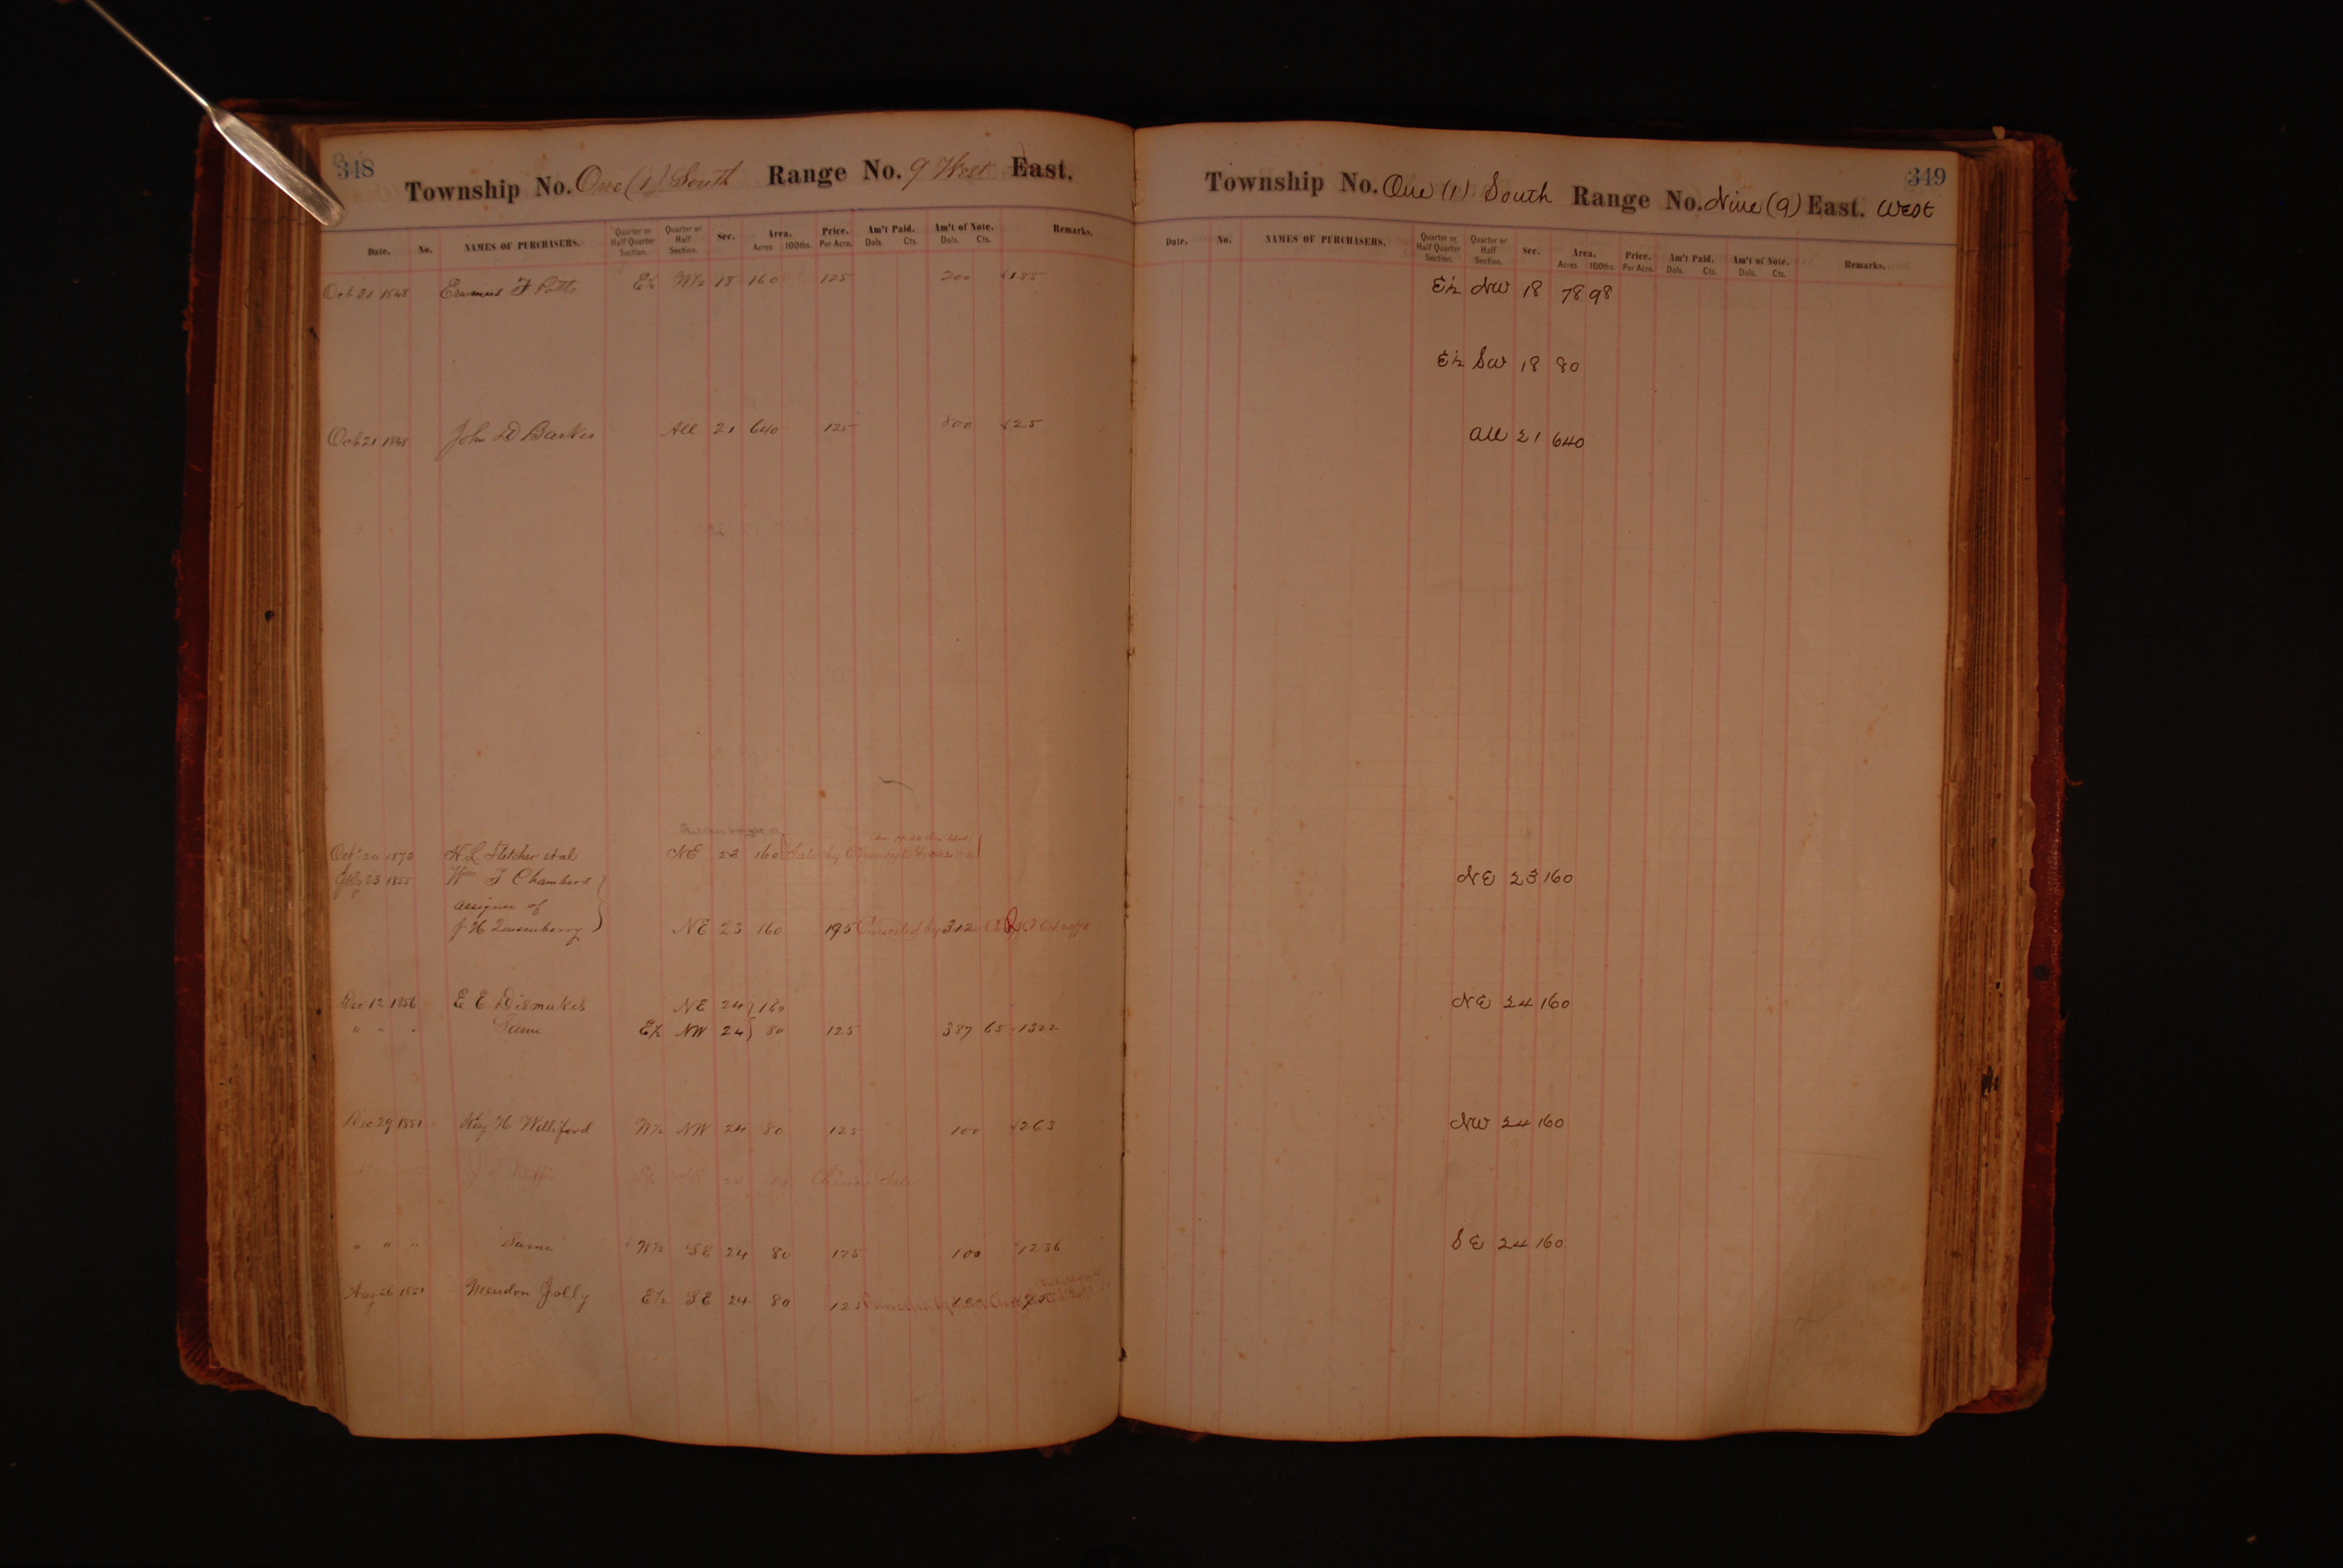 348
Township No. One (1) South Range No. 9 West East.
Date. No. NAMES OF PURCHASERS. Quarter or Half Quarter Section. Quarter or Half Section. Sec. Area. Acres 100ths. Price. Per Acre. Am't Paid. Dols. Cts. Am't of Note. Dols. Cts. Remarks.
Oct 21 1848 F Potts E½ W½ 18 160 125 200 185
Oct 21 1848 John D Barkes All 21 640 125 800 25
Oct 20 1872 H L Fletcher et al NE 23 160 Sale by Chancery
23 1855 Wm F Chambers
assignee of
J H Quesenberry NE 23 160 195 Canceled by 312
Dec 12 1856 E E Dismukes NE 24 160
" " " Same E½ NW 24 80 125 387 65 1322
Dec 29 1851 H Williford W½ NW 24 80 125 100 263
E½ SE 24 80 Sale
" " " Same W½ SE 24 80 125 100 1236
Aug 26 1851 Jolly E½ SE 24 80 125
349
Township No. One (1) South Range No. Nine (9) East. West
Date. No. NAMES OF PURCHASERS. Quarter or Half Quarter Section. Quarter or Half Section. Sec. Area. Acres 100ths. Price. Per Acre. Am't Paid. Dols. Cts. Am't of Note. Dols. Cts. Remarks.
E½ NW 18 78 98
E½ SW 18 80
All 21 640
NE 23 160
NE 24 160
NW 24 160
SE 24 160